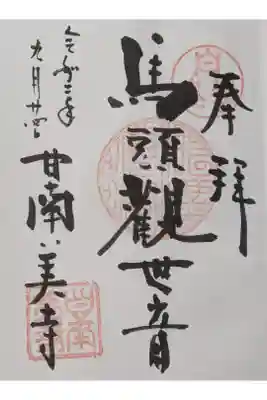 奉拝
馬頭觀世音
令和二年
九月廿
甘南美寺